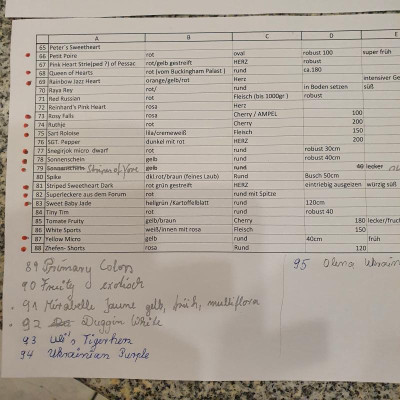 A B C D E
65 Peter´s Sweetheart
66 Petit Poire rot oval robust 100 super früh
67 Pink Heart Strie(ped ?) of Pessac rot/gelb gestreift HERZ robust
68 Queen of Hearts rot (vom Buckingham Palast ) rund ca.180
69 Rainbow Jazz Heart orange/gelb/rot Herz intensiver Ge
70 Raya Rey rot/ rund in Boden setzen süß
71 Red Russian rot Fleisch (bis 1000gr ) robust
72 Reinhard's Pink Heart rosa Herz
73 Rosy Falls rosa Cherry / AMPEL 100
74 Ruthje rot Cherry 200
75 Sart Roloise lila/cremeweiß Fleisch 150
76 SGT. Pepper dunkel mit rot HERZ 200
77 Snegirjok micro dwarf rot rund robust 30cm
78 Sonnenschein gelb rund robust 40cm
79 Sonnenschein Stripes of Yore gelb rund 40 lecker
80 Spike dkl.rot/braun (feines Laub) Rund Busch 50cm
81 Striped Sweetheart Dark rot grün gestreift HERZ eintriebig ausgeizen würzig süß
82 Superleckere aus dem Forum rot rund mit Spitze
83 Sweet Baby Jade hellgrün /Kartoffelblatt rund 120cm
84 Tiny Tim rot rund robust 40
85 Tomate Fruity gelb/braun Cherry 180 lecker/fruc
86 White Sports weiß/innen mit rosa Fleisch 150
87 Yellow Micro gelb rund 40cm früh
88 Zhefen- Shorts rosa Rund 120
89 Primary Colors
90 Fruity exotisch
91 Mirabelle Jaune gelb, früh, multiflora
92 Duggin White
93 Uli's Tigerherz
94 Ukrainian Purple
95 Olena Ukrain